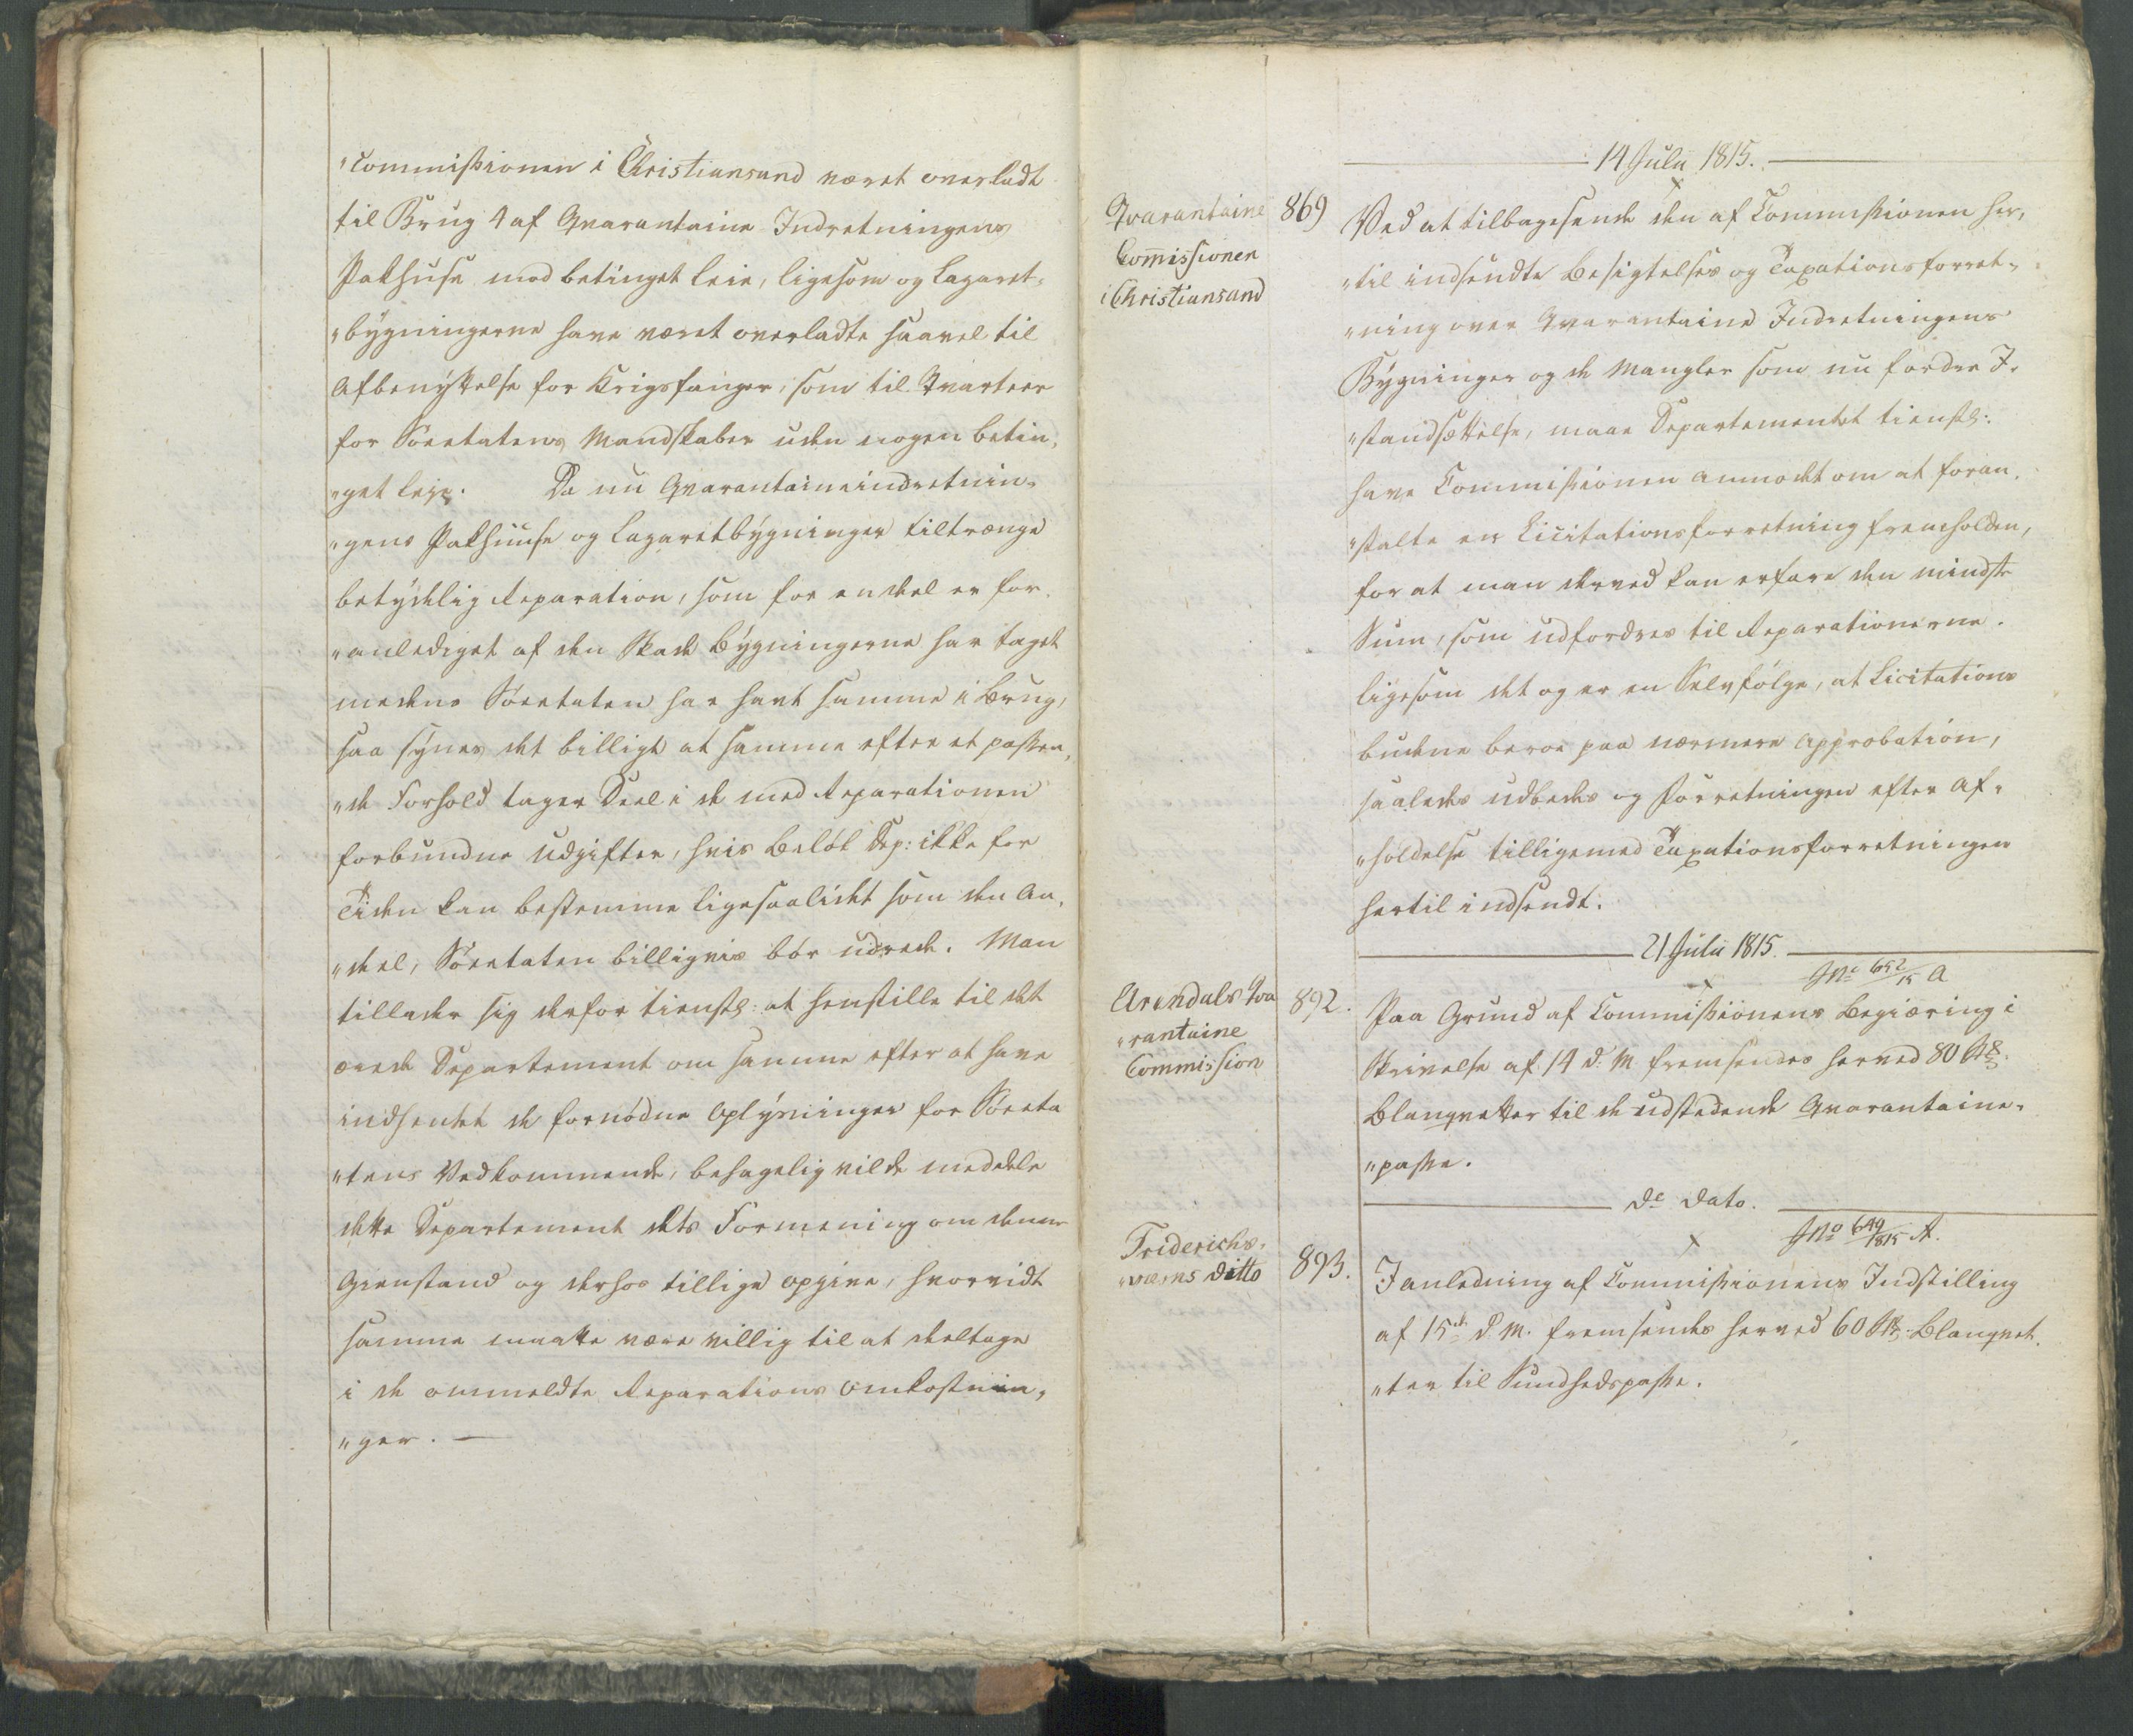 "Commissionen i Christiansand været overladt
til Brug 4 af Qvarantaine Indretningens
Pakhuse mod betinget Leie, ligesom og Lazaret-
"bygningerne have været overladte saavel til
Afbenyttelse for Krigsfanger, som til Qvarteer
for Söeetatens Mandskaber uden nogen betin-
"get Leje. Da nu Qvarantaineindretnin-
"gens Pakhuuse og Lazaretbygninger tiltrænge
betydelig Reparation, som for en deel er for-
"anlediget af den Skade Bygningerne har taget
medens Söeetaten har havt samme i Brug,
saa synes det billigt at samme efter et passen-
"de Forhold tager Deel i de med Reparationen
forbundne Udgifter, hvis Belöb Dep: ikke for
Tiden kan bestemme ligesaalidet som den An-
"deel, Söeetaten billigviis bör udrede. Man
tillader sig derfor tienstl: at henstille til det
ærede Departement om samme efter at have
indhentet de fornödne Oplysninger for Söeeta
"tens Vedkommende, behagelig vilde meddele
dette Departement dets Formening om denne
Gienstand og derhos tillige opgive, hvorvidt
samme maatte være villig til at deeltage
i de ommeldte Reparations Omkostnin-
"ger. —
14 Julii 1815.
Qvarantaine
Commissionen
i Christiansand
869
Ved at tilbagesende den af Commissionen her-
"til indsendte Besigtelses og Taxationsforret-
"ning over Qvarantaine Indretningens
Bygninger og de Mangler som nu fordre I-
"standsættelse, maae Departementet tienstl:
have Commissionen anmodet om at foran-
"stalte en Licitationsforretning fremholden,
for at man derved kan erfare den mindste
Sum, som udfordres til Reparationerne.
ligesom det og er en Selvfölge, at Licitations
budene beroe paa nærmere Approbation,
saaledes udbedes og Forretningen efter Af-
"holdelse tilligemed Taxationsforretningen
hertil indsendt.
21 Julii 1815.
JNo 652/15 A
Arendals Qva
"rantaine
Commission
892.
Paa Grund af Commissionens Begiæring i
Skrivelse af 14 d. M. fremsendes herved 80 Stk.
Blanqvetter til de udstedende Qvarantaine-
"passe.
De Dato.
JNo 649/1815 A.
Friderichs-
"værns Ditto
893.
I anledning af Commissionens Indstilling
af 15de d. M. fremsendes herved 60 Stk. Blanqvet-
"ter til Sundhedspasse.